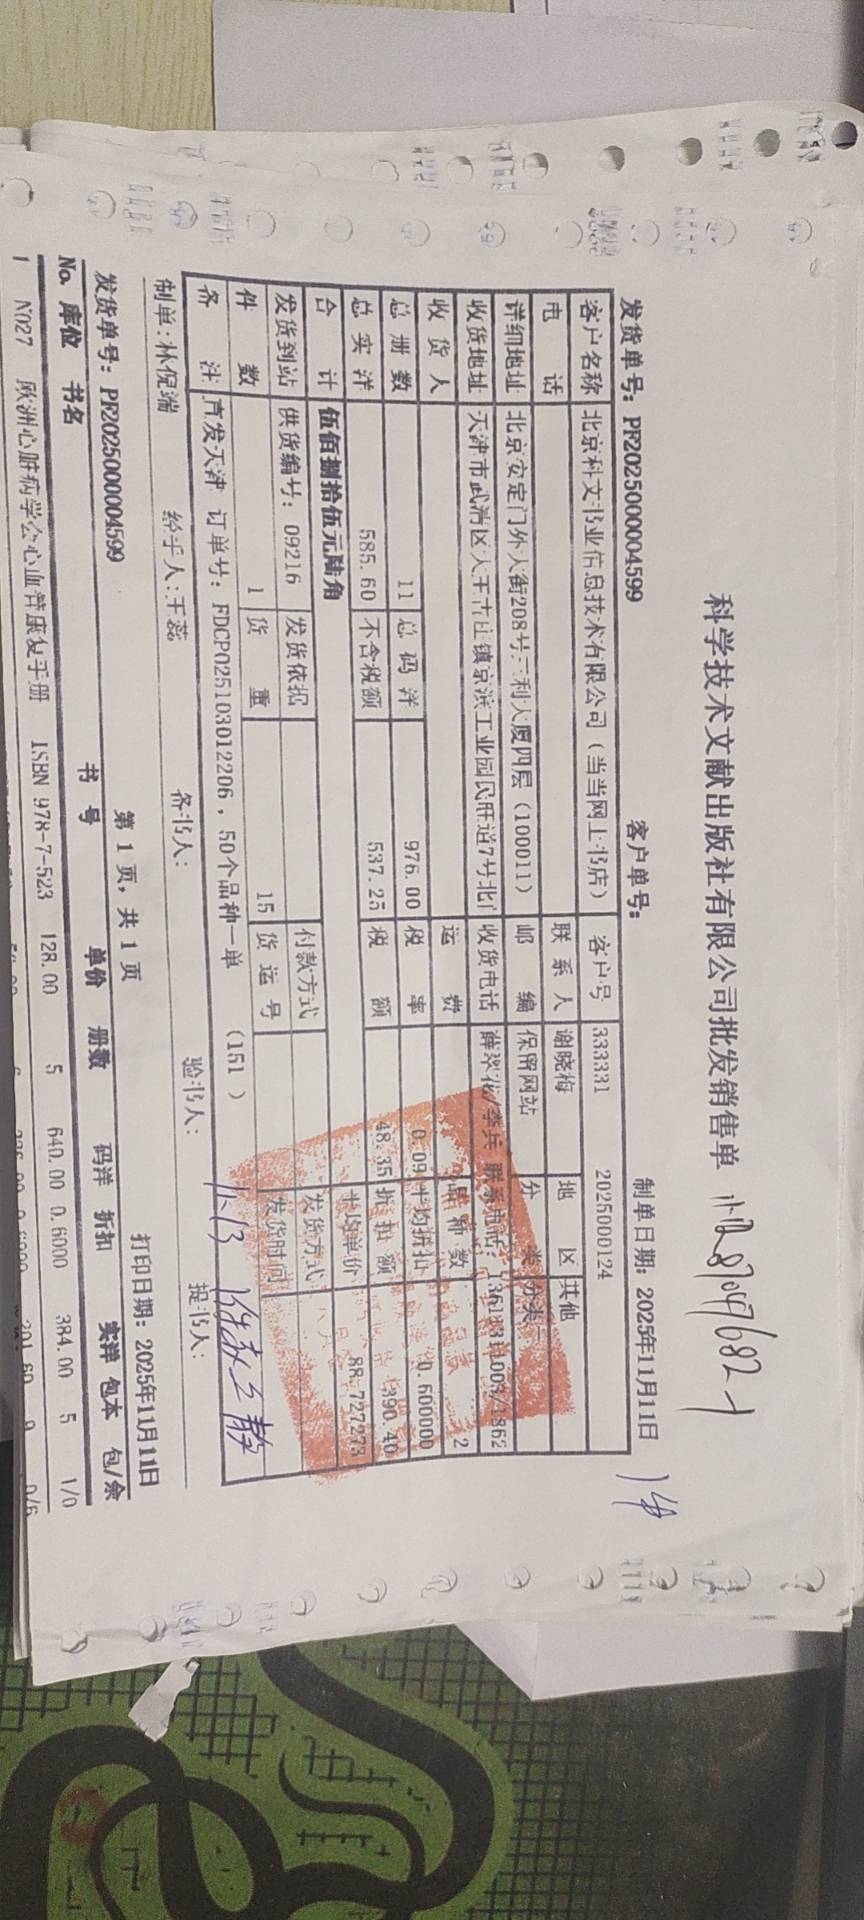 科学技术文献出版社有限公司批发销售单
发货单号：PF2025000004599 客户单号： 制单日期：2025年11月11日
客户名称 北京科文书业信息技术有限公司（当当网上书店） 客户号 333331 2025000124
电话 联系人 谢晓梅 地区 其他
详细地址 北京安定门外大街208号三利大厦四层（100011） 邮编 保留网站 分类 分类二
收货地址 天津市武清区大王古庄镇京滨工业园民旺道7号北门 收货电话 薛翠花/李兵 联系电话：
收货人 运费 品种数 2
总册数 11 总码洋 976.00 税率 0.09 平均折扣 0.600000
总实洋 585.60 不含税额 537.25 税额 48.35 折扣额 390.40
合计 伍佰捌拾伍元陆角 平均单价 88.727273
发货到站 供货编号：09216 发货依据 付款方式 发货方式
件数 1 货重 15 货运号 发货时间
备注 直发天津 订单号：FDCP025103012206，50个品种一单 （151 ）
制单：林倪端 经手人：王蕊 备书人： 验书人： 提书人：
第 1 页，共 1 页
发货单号：PF2025000004599 打印日期：2025年11月11日
No. 库位 书名 书号 单价 册数 码洋 折扣 实洋 包本 包/余
1 N027 欧洲心脏病学会心血管康复手册 ISBN 978-7-523 128.00 5 640.00 0.6000 384.00 5 1/0